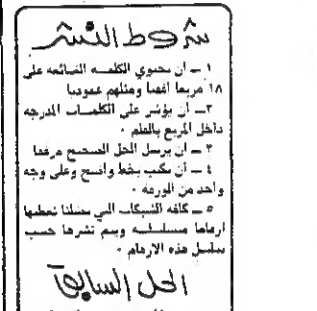 شروط النشر
١ ــ ان تحتوي الكلمه الضائعه على
١٨ مربعا افقيا ومثلهم عموديا
٢ــ أن يؤشر على الكلمــات المدرجه
داخل المربع بالقلم ٠
٣ ــ ان يرسل الحل الصحيح مرفقا
٤ ــ أن يكتب بخط واضح وعلى وجه
واحد من الورقه ٠
٥ ــ كافه الشبكات التي تصلنا نعطيها
ارقاما مسلسلــه ويتم نشرها حسب
تسلسل هذه الارقام ٠
الحل السابق